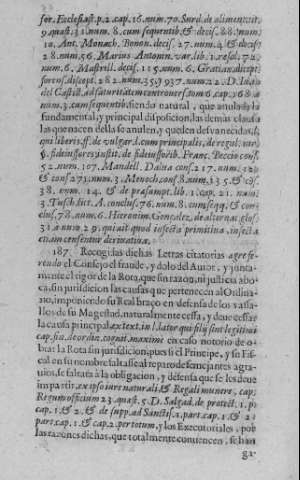 for. Ecclesiast. p. 2. cap. 16. num. 70. Surd. de aliment. tit.
9. quæst. 31. num. 8. cum sequentib. & decis. 88. num.
10. Ant. Monach. Bonon. decis. 27. num. 4. & decis.
28. num. 56. Marius Antonin. var. lib. 1. resol. 72.
num. 6. Mastrill. decis. 115. num. 6. Gratian. discept.
forens. discept. 282. num. 35. 937. num. 22. D. Iuan
del Castill. ad saturitatem controvers. tom. 6. cap. 168. à
num. 3. cum sequentib. siendo natural, que anulada la
fundamental, y principal disposicion, las demàs clausulas
que nacen della se anulen, y queden desvanecidas, l.
qui liberis, ff. de vulgar. l. cum principalis, de regul. iur.
§. fideiussores institut. de fideiussorib. Franc. Beccio cons.
52. num. 107. Mandell. Dalua cons. 217. num. 12.
& cons. 273. num. 3. Menoch. cons. 8. num. 335. & cons.
38. num. 14. & de præsumpt. lib. 1. cap. 21. num.
3. Tusch. lict. A. conclus. 76. num. 8. cum seqq. & conclus.
78. num. 6. Hieronim. Gonçalez, de alternat. glos.
31. à num. 29. qui ait quod infecta primitiua, infecta
etiam censentur deriuatiua.
187 Recogi las dichas Letras citatorias
riendo el Consejo el fraude, y dolo del Autor, y juntamente
el rigor de la Rota, que sin razon, ni justicia aboca,
sin jurisdicion las causas que pertenecen al Ordinario,
imponiendo su Real braço en defensa de los vasallos
de su Magestad, naturalmente cessa, y deue cessar
la causa principal, ex text. in l. lator qui filij sint legitimi
cap. fin. de ordin. cognit. maxime en caso notorio de obrar
la Rota sin jurisdicion, pues si el Principe, y su Fiscal
en su nombre faltasse al reparo de semejantes agrauios,
se faltaria à la obligacion, y defensa que se les deue
impartir, ex ipso iure naturali & Regali munere, cap.
Regum officium 23. quæst. 5. D. Salgad. de protect. 1. p.
cap. 1. & 2. & de supp. ad Sanctiss. 1. part. cap. 1. & 2.
part. cap. 1. & cap. 2. per totum, y los Executoriales, por
las razones dichas, que totalmente conuencen, se han